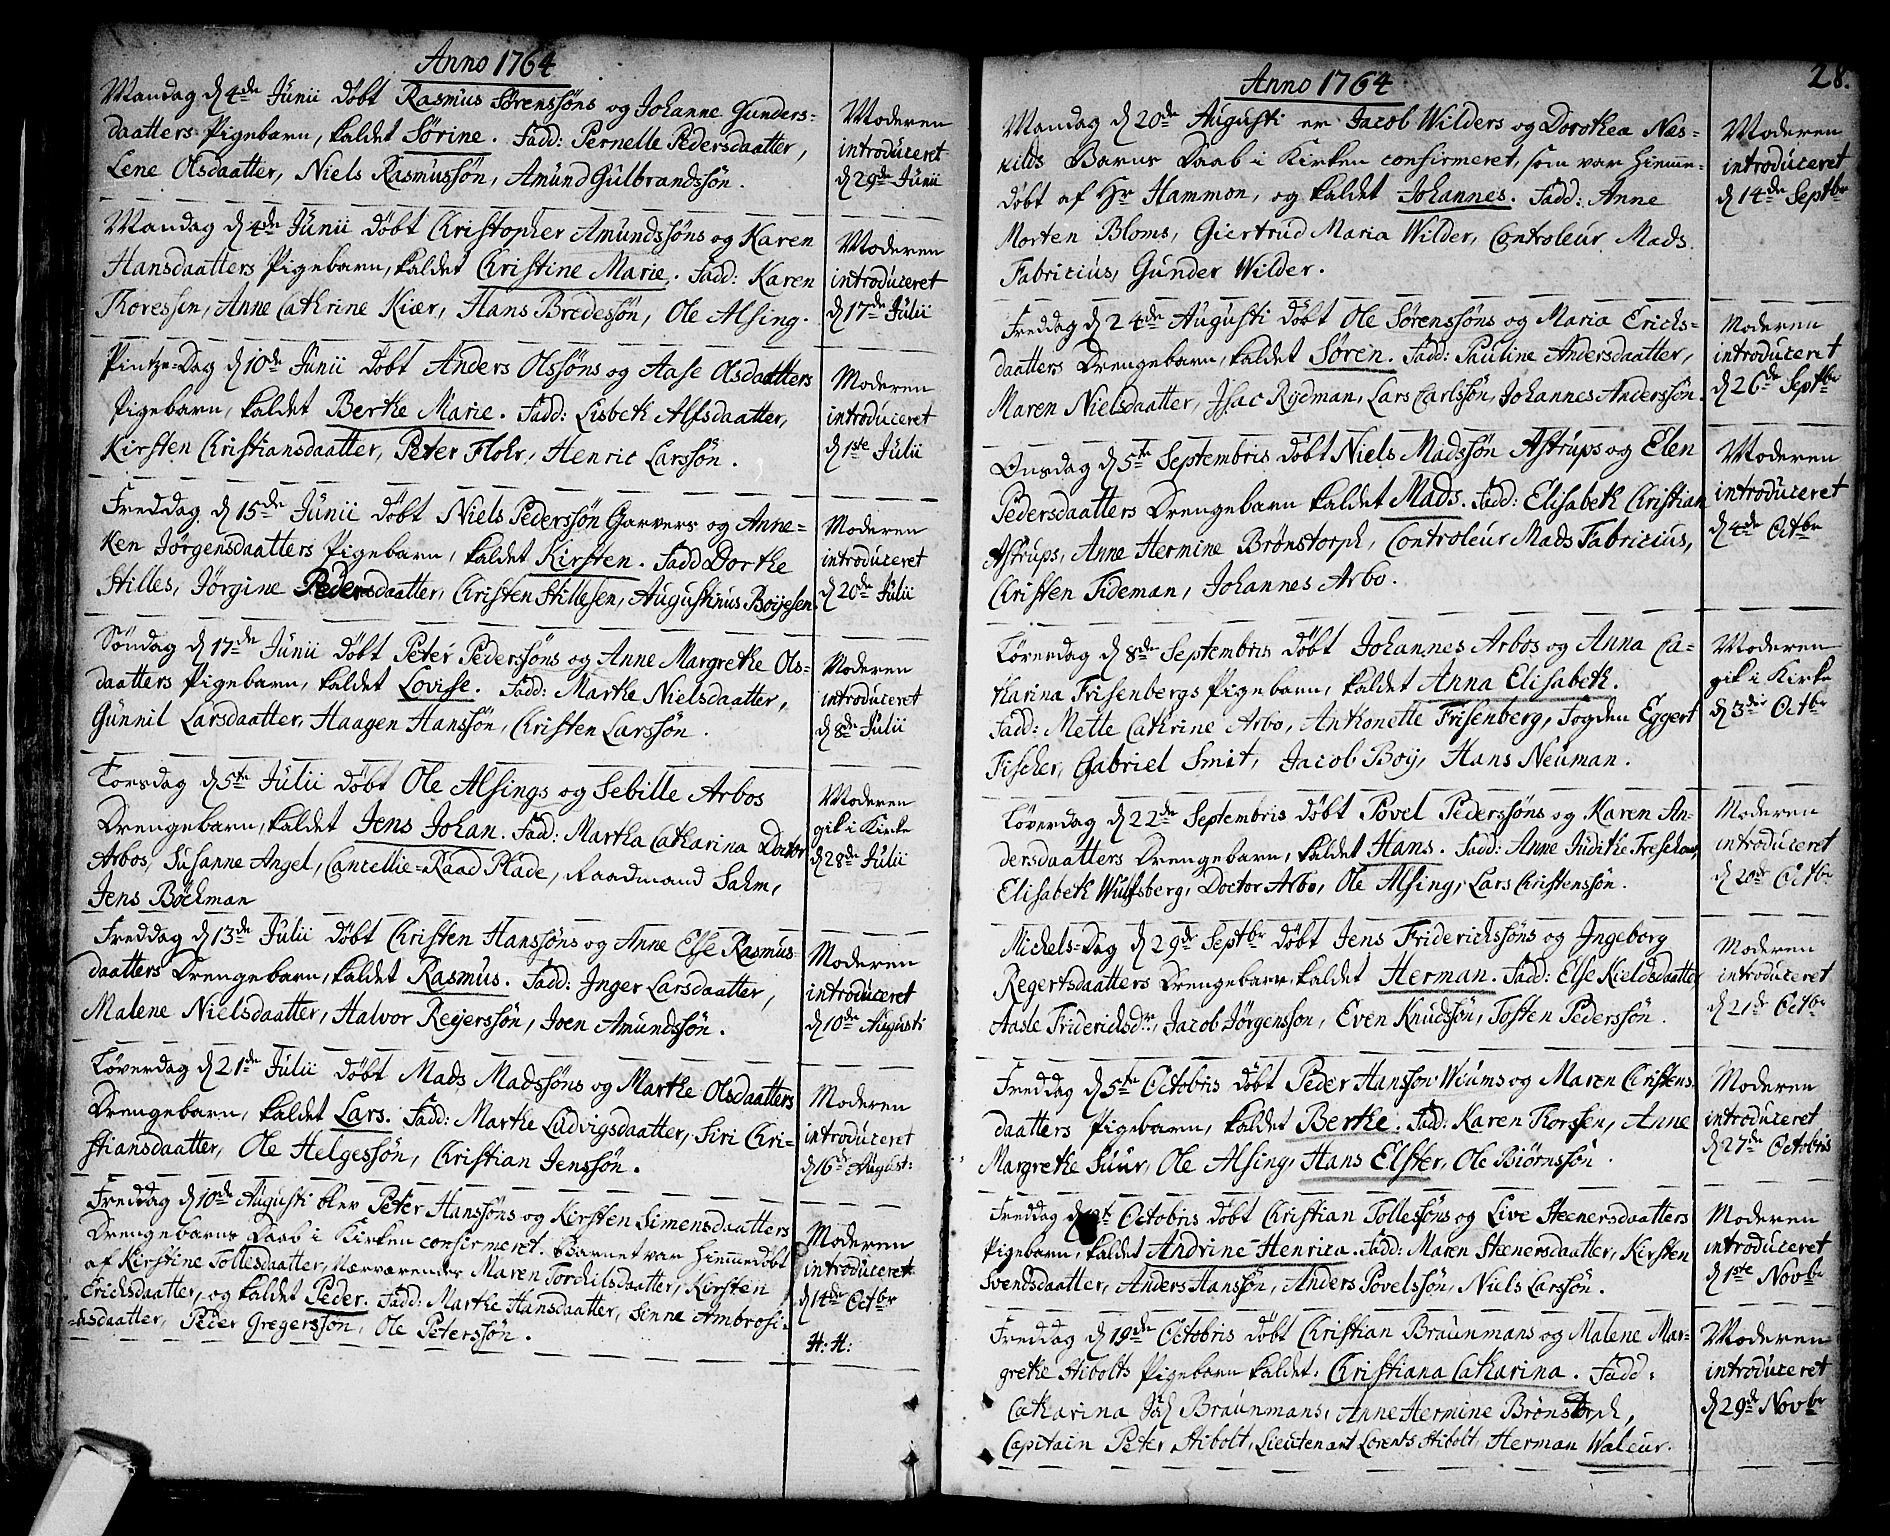 Anno 1764
Mandag d 4de Junii döbt Rasmus Sörenssöns og Johanne Gunders-
daatters Pigebarn, kaldet Sörine. Fadd: Pernelle Pedersdaatter,
Lene Olsdaatter, Niels Rasmussön, Amund Gulbrandssön.
Moderen
introduceret
d 29de Junii
Mandag d 4de Junii döbt Christopher Amundssöns og Karen
Hansdaatters Pigebarn, kaldet Christine Marie. Fadd: Karen
Thoressen, Anne Cathrine Kiær, Hans Bredessön, Ole Alsing.
Moderen
introduceret
d 17de Julii
Pintze-Dag d 10de Junii döbt Anders Olssöns og Aase Olsdaatters
Pigebarn, kaldet Berthe Marie. Fadd: Lisbeth Alfsdaatter,
Kirsten Christiansdaatter, Peter Flohr, Henric Larssön.
Moderen
introduceret
d 1ste Julii
Freddag d 15de Junii döbt Niels Pederssön Garvers og Anne-
ken Jörgensdaatters Pigebarn, kaldet Kirsten. Fadd Dorthe
Stilles, Jörgine Pedersdaatter, Christen Stillesen, Augustinus Boijesen.
Moderen
introduceret
d 20de Julii
Söndag d 17de Junii döbt Peter Pederssöns og Anne Margrethe Ols-
daatters Pigebarn, kaldet Lovise. Fadd: Marthe Nielsdaatter,
Gunnil Larsdaatter, Haagen Hanssön, Christen Larssön.
Moderen
introduceret
d 8de Julii
Torsdag d 5te Julii döbt Ole Alsings og Sebille Arbos
Drengebarn, kaldet Jens Johan. Fadd: Martha Catharina Doctor
Arbos, Susanne Angel, Cancellie-Raad Plade, Raadmand Sahm,
Jens Böckman
Moderen
gik i Kirke
d 28de Julii
Freddag d 13de Julii döbt Christen Hanssöns og Anne Else Rasmus
daatters Drengebarn, kaldet Rasmus. Fadd: Inger Larsdaatter,
Malene Nielsdaatter, Halvor Reijerssön, Joen Amundssön.
Moderen
introduceret
d 10de Augusti
Löverdag d 21de Julii döbt Mads Madssöns og Marthe Olsdaatters
Drengebarn, kaldet Lars. Fadd: Marthe Ludvigsdaatter, Siri Chri-
stiansdaatter, Ole Helgessön, Christian Jenssön.
Moderen
introduceret
d 16de August:
Freddag d 10de Augusti blev Peter Hanssöns og Kirsten Simensdaatters
Drengebarns Daab i Kirken confirmeret. Barnet var hiemmedöbt
af Kirstine Tollesdaatter, Nærværende Maren Torchilsdaatter, Kirsten
Erichsdaatter, og kaldet Peder. Fadd: Marthe Hansdaatter, Sinne Ambrosi-
usdaatter, Peder Gregerssön, Ole Peterssön.
Moderen
introduceret
d 14de Octbr
H: H:
28.
Anno 1764
Mandag d 20de Augusti er Jacob Wilders og Dorothea Næs-
kilds Barns Daab i Kirken confirmeret, som var hiemme-
döbt af Hr Hammon, og kaldet Johannes. Fadd: Anne
Morten Bloms, Giertrud Maria Wilder, Controleur Mads
Fabricius, Gunder Wilder.
Moderen
introduceret
d 14de Septbr
Freddag d 24de Augusti döbt Ole Sörenssöns og Maria Erichs-
daatters Drengebarn, kaldet Sören. Fadd: Pauline Andersdaatter,
Maren Nielsdaatter, Isac Rydman, Lars Carlssön, Johannes Anderssön.
Moderen
introduceret
d 26de Septbr
Onsdag d 5te Septembris döbt Niels Madssön Astrups og Elen
Pedersdaatters Drengebarn kaldet Mads. Fadd: Elisabeth Christian
Astrups, Anne Hermine Brönstorph, Controleur Mads Fabricius,
Christen Tideman, Johannes Arbo.
Moderen
introduceret
d 4de Octbr
Löverdag d 8de Septembris döbt Johannes Arbos og Anna Ca-
tharina Frisenbergs Pigebarn, kaldet Anna Elisabeth.
Fadd: Mette Cathrine Arbo, Anthonette Frisenberg, Fogden Eggert
Fischer, Gabriel Smit, Jacob Boy, Hans Neuman.
Moderen
gik i Kirke
d 3die Octbr
Löverdag d 22de Septembris döbt Povel Pederssöns og Karen An-
dersdaatters Drengebarn, kaldet Hans. Fadd: Anne Judithe Treschow,
Elisabeth Wulfsberg, Doctor Arbo, Ole Alsing, Lars Christenssön.
Moderen
introduceret
d 20de Octbr
Michels-Dag d 29de Septbr döbt Jens Friderichssöns og Ingeborg
Regertsdaatters Drengebarn, kaldet Herman. Fadd: Else Kieldsdaatter
Aasle Friderichsdr, Jacob Jörgensson, Even Knudsön, Tosten Pederssön.
Moderen
introduceret
d 21de Octbr
Freddag d 5te Octobris döbt Peder Hansson Wiums og Maren Christens
daatters Pigebarn, kaldet Berthe. Fadd: Karen Thorsen, Anne
Margrethe Juur, Ole Alsing, Hans Elster, Ole Biörnssön.
Moderen
introduceret
d 27de Octobris
Freddag d Octobris döbt Christian Tollessöns og Live Steenersdaatters
Pigebarn, kaldet Andrine Henrica. Fadd: Maren Steenersdaatter, Kirsten
Svendsdaatter, Anders Hanssön, Anders Povelssön, Niels Larssön.
Moderen
introduceret
d 1ste Novbr
Freddag d 19de Octobris döbt Christian Braunmans og Malene Mar-
grethe Stibolts Pigebarn kaldet, Christiana Catharina. Fadd:
Catharina Joh Braunmans, Anne Hermine Brönstorph,
Capitain Peter Stibolt, Lieutenant Lorents Stibolt, Herman Waleur.
Moderen
introduceret
d 29de Novbr